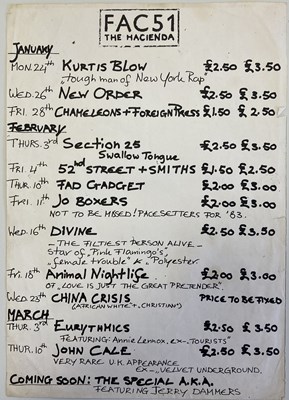 FAC51
THE HACIENDA
JANUARY
MON. 24th KURTIS BLOW £2.50 £3.50
"tough man of New York Rap"
WED. 26th NEW ORDER £2.50 £3.50
FRI. 28th CHAMELEONS + FOREIGN PRESS £1.50 £2.50
FEBRUARY
THURS. 3rd Section 25 £2.50 £3.50
Swallow Tongue
FRI. 4th 52nd STREET + SMITHS £1.50 £2.50
THUR. 10th FAD GADGET £2.00 £3.00
FRI. 11th JO BOXERS £2.00 £3.00
NOT TO BE MISSED! PACESETTERS FOR '83.
WED. 16th DIVINE £2.50 £3.50
- THE FILTIEST PERSON ALIVE -
Star of "Pink Flamingo's",
"female trouble" & "Polyester.
FRI. 18th Animal Nightlife £2.00 £3.00
OF "LOVE IS JUST THE GREAT PRETENDER".
WED. 23rd CHINA CRISIS PRICE TO BE FIXED
(AFRICAN WHITE" + "CHRISTIAN")
MARCH
THUR. 3rd EURYTHMICS £2.50 £3.50
FEATURING: Annie Lennox, ex-"TOURISTS"
THUR. 10th JOHN CALE £2.50 £3.50
VERY RARE U.K. APPEARANCE
EX-"VELVET UNDERGROUND.
COMING SOON: THE SPECIAL A.K.A.
FEATURING JERRY DAMMERS